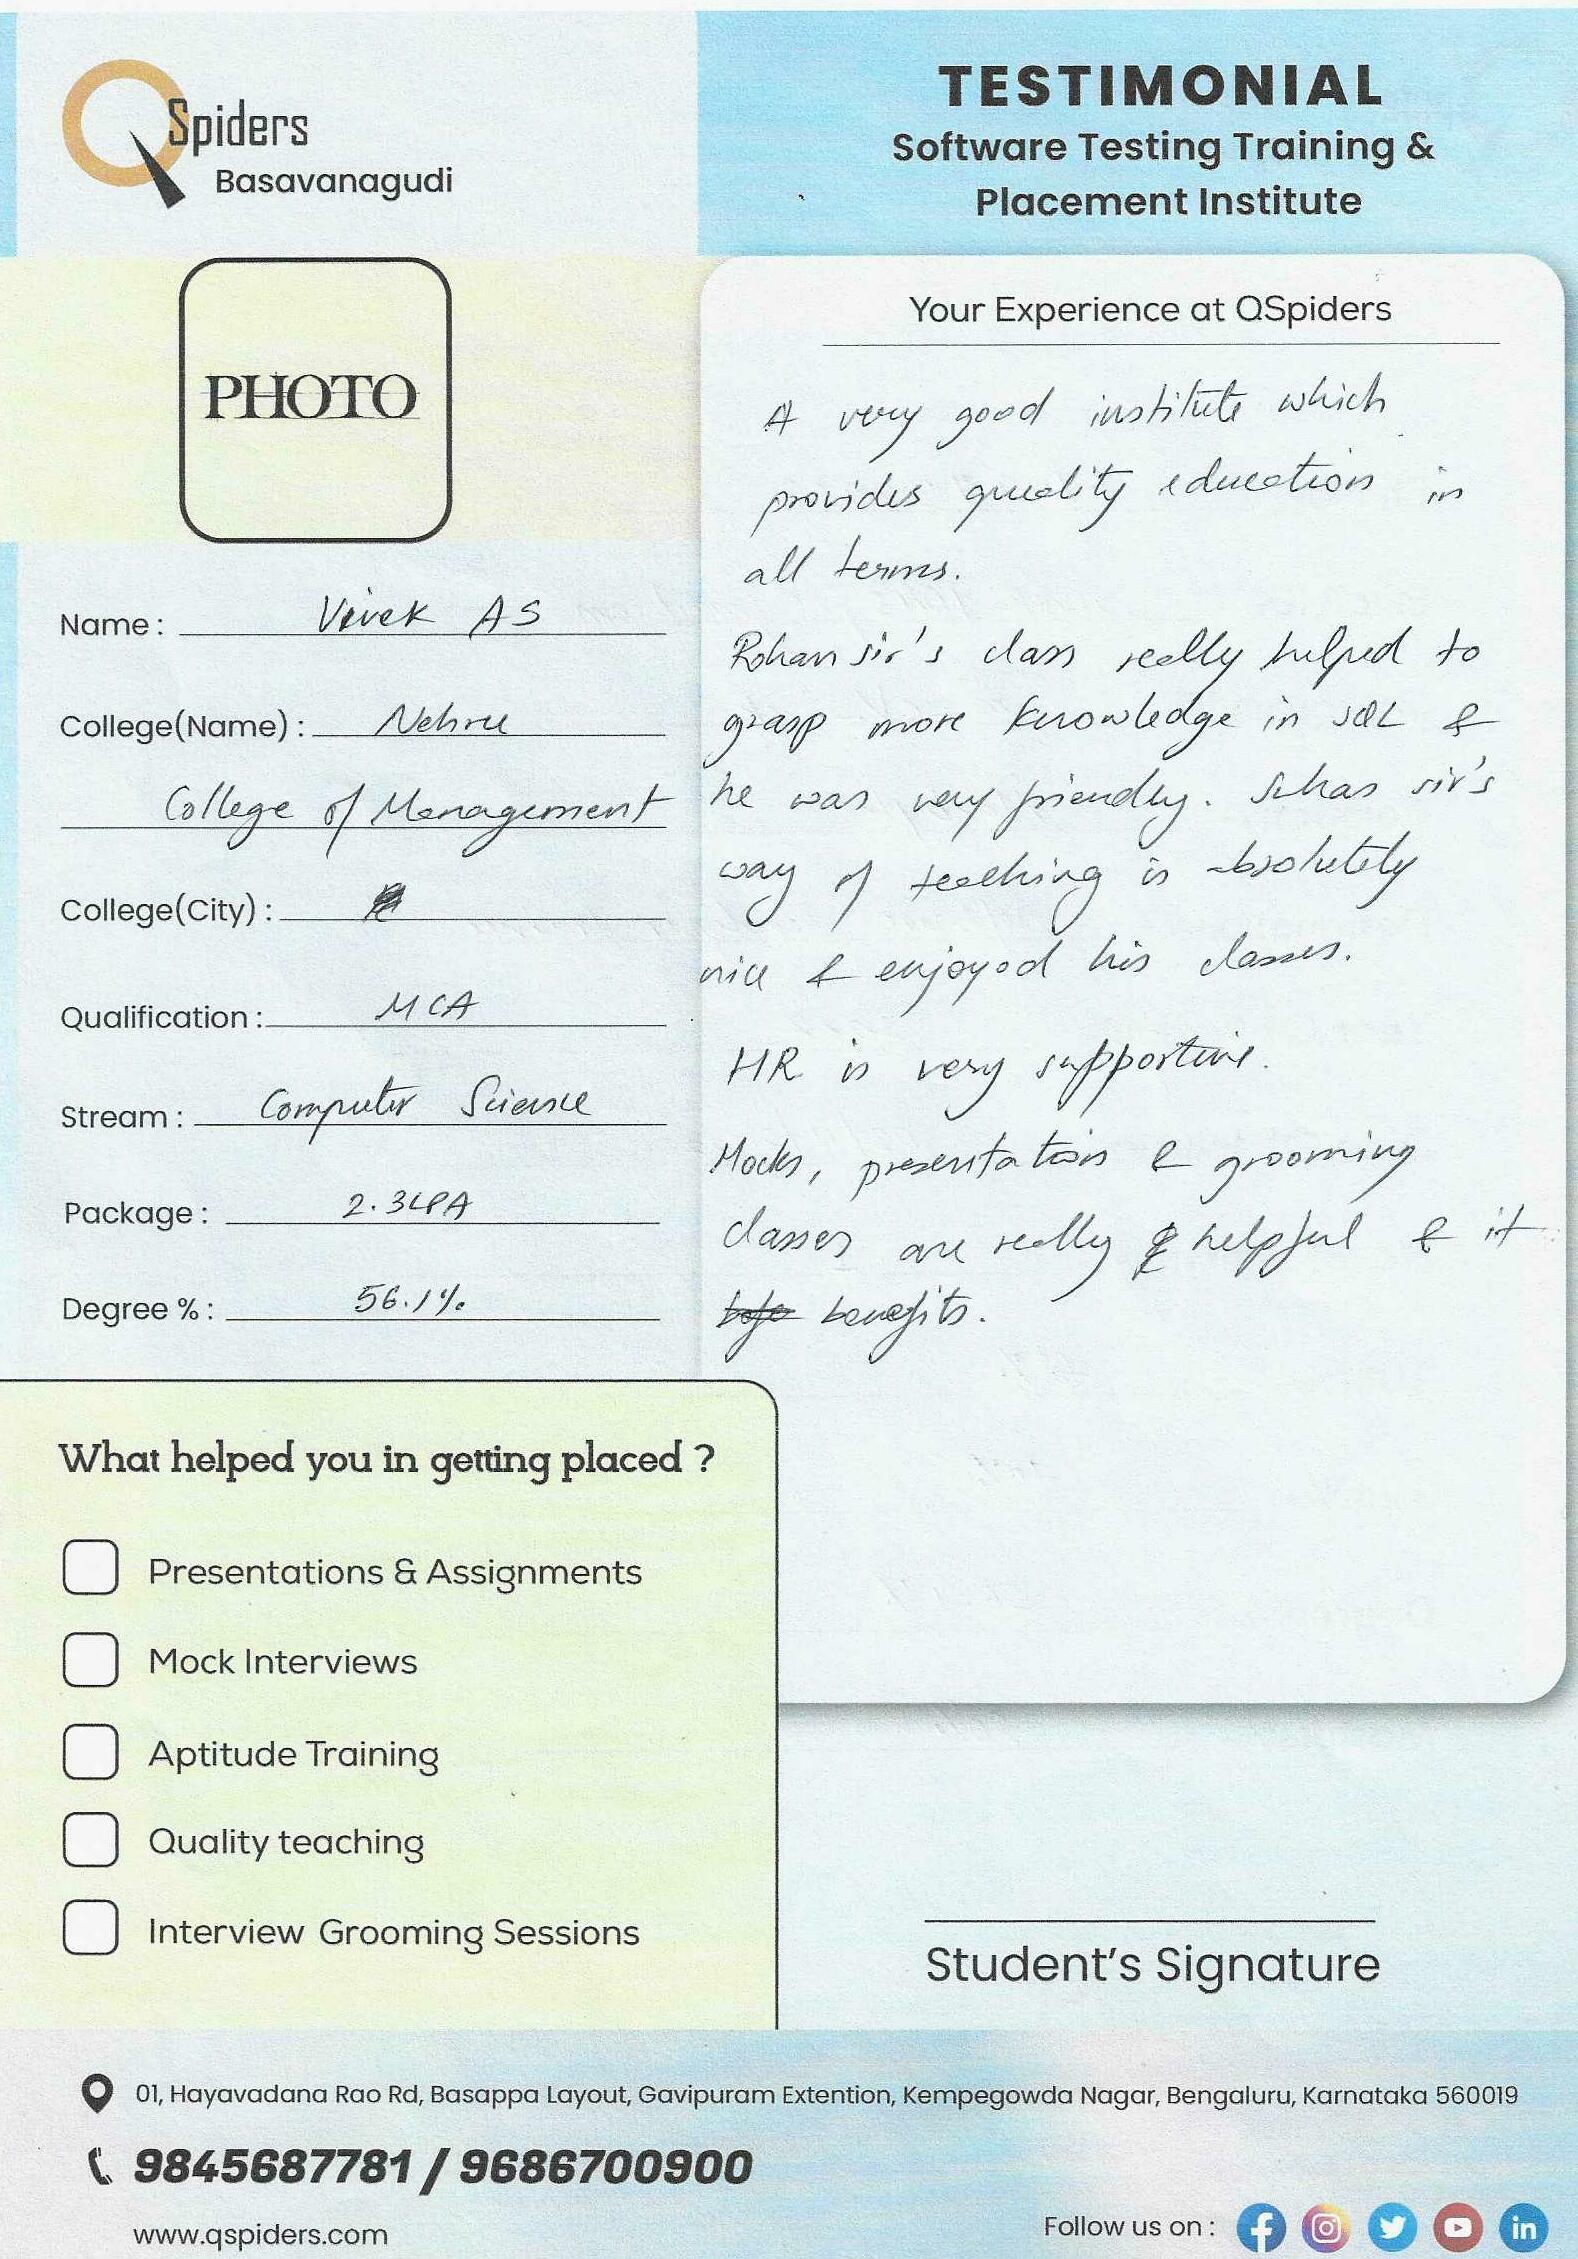 QSpiders
Basavanagudi
TESTIMONIAL
Software Testing Training &
Placement Institute
PHOTO
Name : Vivek AS
College(Name) : Nehru
College of Management
College(City) :
Qualification : MCA
Stream : Computer Science
Package : 2.3LPA
Degree % : 56.1%
Your Experience at QSpiders
A very good institute which
provides quality education in
all terms.
Rohan sir's class really helped to
grasp more knowledge in SQL &
he was very friendly. Suhas sir's
way of teaching is absolutely
nice & enjoyed his classes.
HR is very supportive.
Mocks, presentation & grooming
classes are really helpful & it
benefits.
What helped you in getting placed ?
Presentations & Assignments
Mock Interviews
Aptitude Training
Quality teaching
Interview Grooming Sessions
Student's Signature
01, Hayavadana Rao Rd, Basappa Layout, Gavipuram Extention, Kempegowda Nagar, Bengaluru, Karnataka 560019
9845687781 / 9686700900
www.qspiders.com
Follow us on :